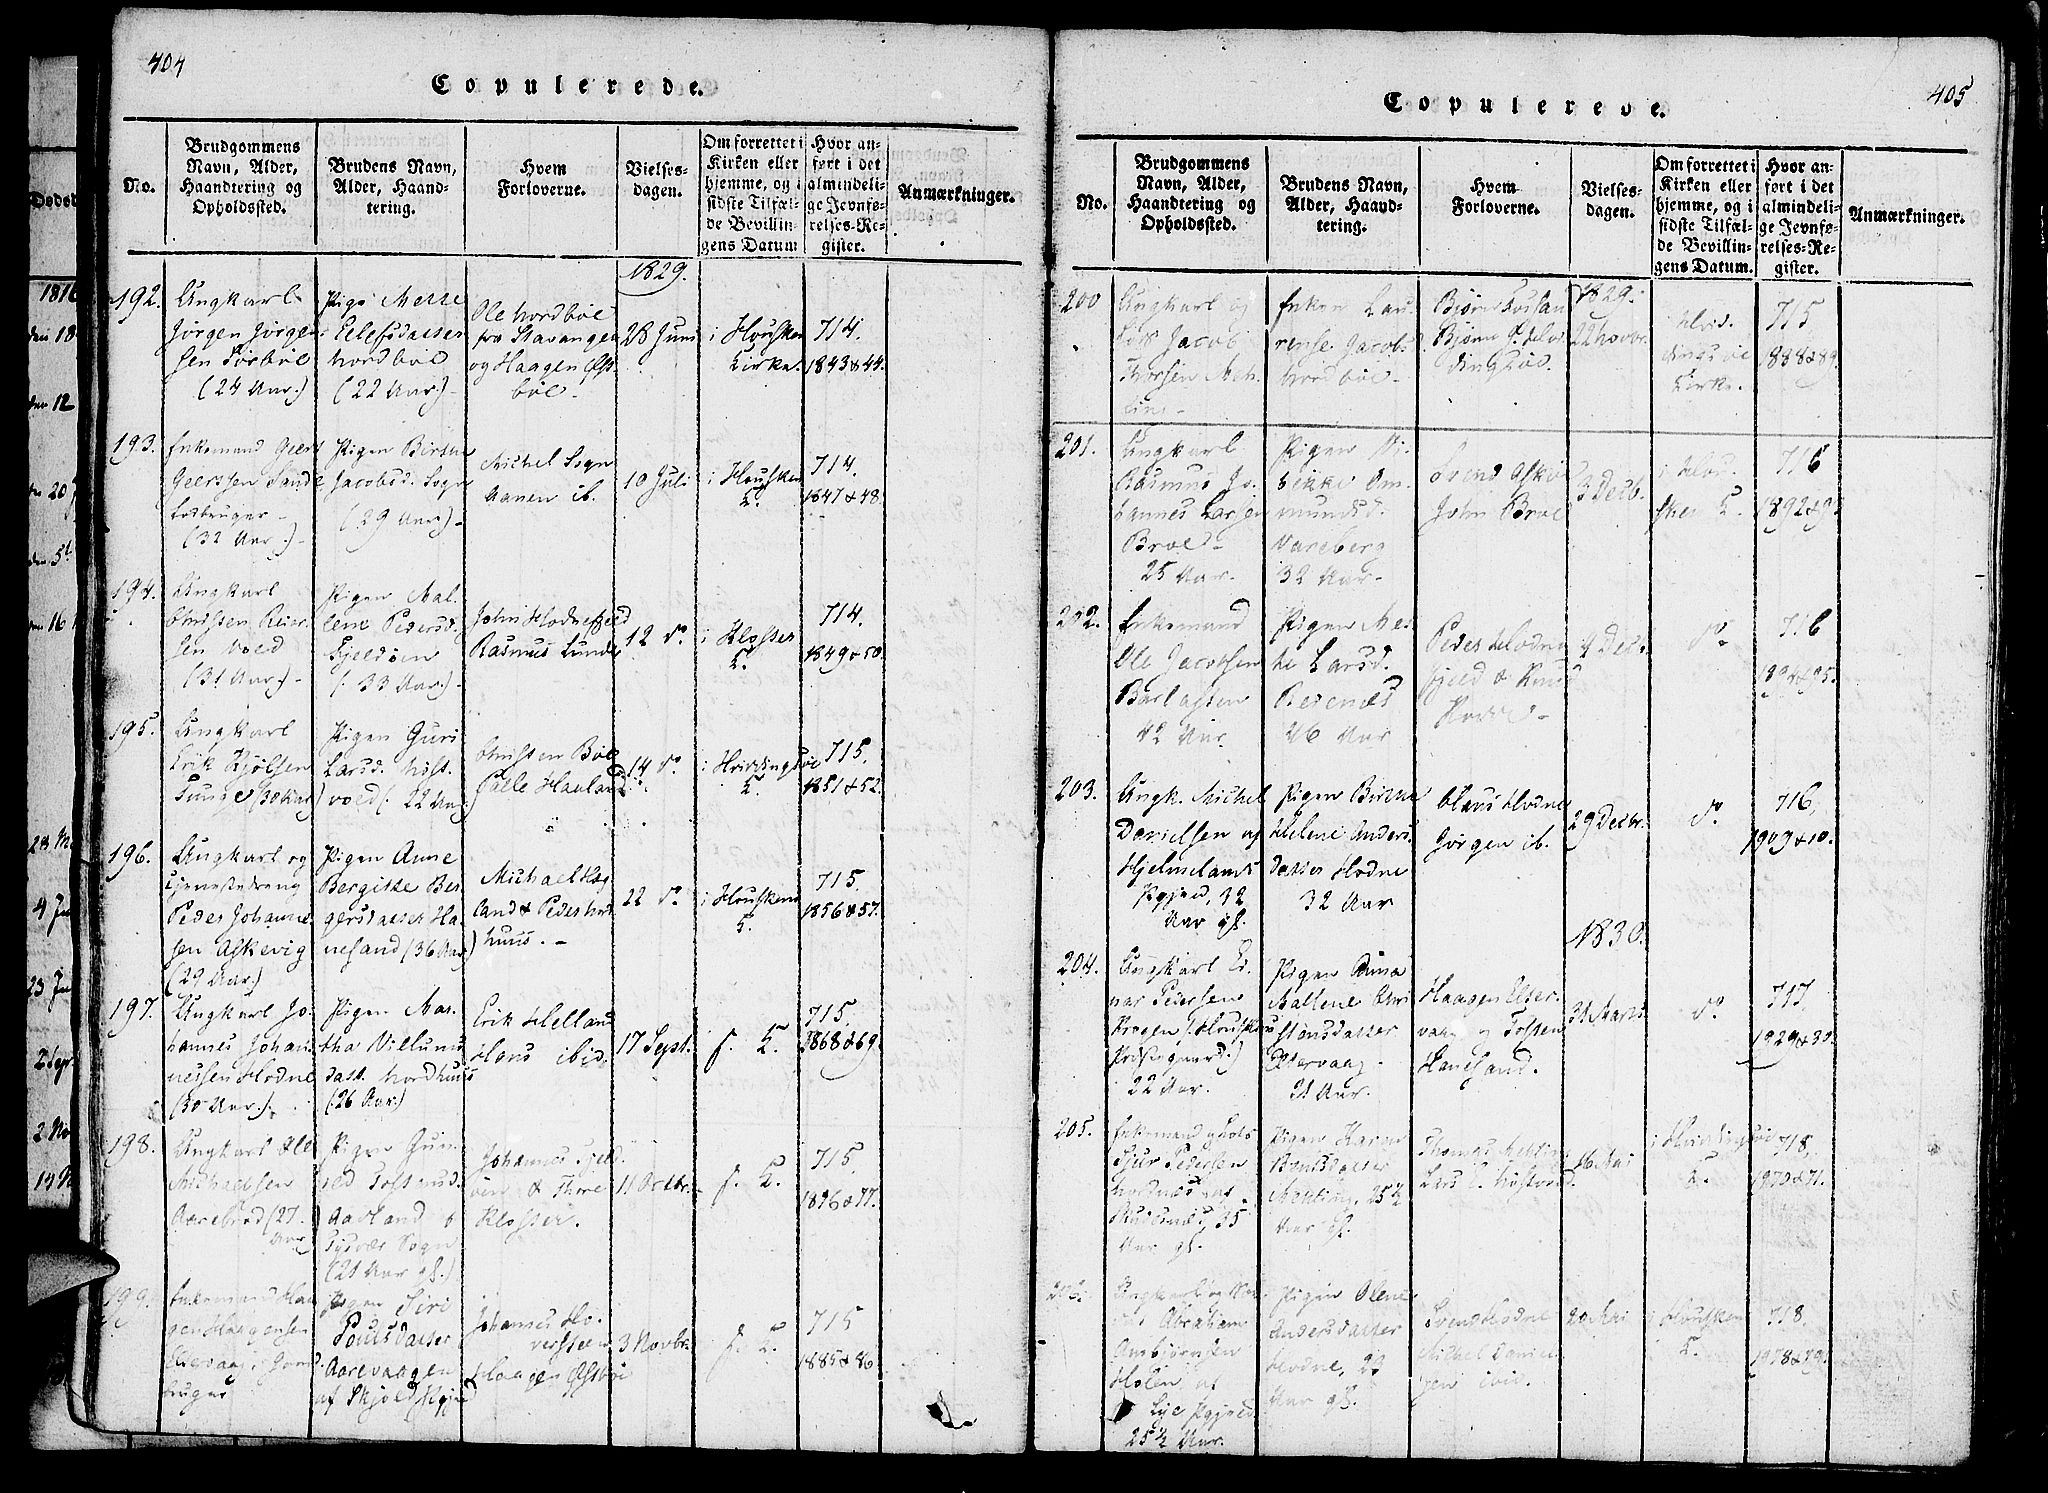 404
Copulerede.
No.
Brudgommens Navn, Alder, Haandtering og Opholdssted.
Brudens Navn, Alder, Haandtering.
Hvem Forloverne.
Vielsesdagen.
Om forrettet i Kirken eller hjemme, og i sidste Tilfælde Bevillingens Datum
Hvor anført i det almindelige Jevnførelses-Register.
Anmærkninger.
1829.
192.
Ungkarl
Jørgen Jørgen-
sen Sørbøe
(24 Aar.)
Pige Mette
Ellefsdatter
Nordbøe
(22 Aar)
Ole Nordbøe
fra Stavanger
og Haagen Øst
bøe
28 Juni
i Houskens
Kirke.
714.
1843 & 44.
193.
Enkemand Geert
Geertsen Sande
(32 Aar.)
Pigen Birthe
Jacobsd. Sogn
(29 Aar)
Michel Sogn
Aanen ib.
10 Juli
i Housken
K.
714.
1847 & 48.
194.
Ungkarl
(31 Aar.)
Pigen Mal-
lene Pedersd.
Fjeldøen
(33 Aar.)
John Hodnefjeld
Rasmus Lunde
12 do
i Kloster
K.
714.
1849 & 50.
195.
Ungkarl
Erik Kjølsen
Tunge (30 Aar)
Pigen Guri
Larsd. Nøst-
vold (22 Aar)
Christen Bøe
Palle Hauland
14 do
i Hvidingsøe
K.
715.
1851 & 52.
196.
Ungkarl og
Tjenestedreng
Peder Johanne-
sen Askevig
(29 Aar.)
Pigen Anne
Bergitte Ber-
gersdatter Ha-
nesand (36 Aar)
Michael Hog-
land & Peder Nord
huus.
22 do
i Houskens
K.
715.
1856 & 57.
197.
Ungkarl Jo-
hannes Johan-
nessen Hodne
(30 Aar.)
Pigen Mar-
tha Villums
datt. Nordhuus
(26 Aar.)
Erik Helland
Hans ibid.
17 Sept.
K.
715.
1868 & 69.
198.
Ungkarl Ole
Michaelsen
Aarebrod (27
Aar)
Pigen Gun-
ild Tostensd.
Aarland
Tysvær Sogn
(21 Aar gl.)
Johannes Fjeld-
øen & Thore
Kloster.
11 Octbr.
K.
715.
1876 & 77.
199.
Enkemand Haa-
gen Haagensen
Eltervaag, Jord-
bruger
Pigen Siri
Poulsdatter
Aarevaagen
af Skjold Pgjæld
Johannes Ho-
versteen
Haagen Østbøe
3 Novbr.
K.
715
1885 & 86
405
Copulerede.
No.
Brudgommens Navn, Alder, Haandtering og Opholdssted.
Brudens Navn, Alder, Haandtering.
Hvem Forloverne.
Vielsesdagen.
Om forrettet i Kirken eller hjemme, og i sidste Tilfælde Bevillingens Datum.
Hvor anført i det almindelige Jevnførelses-Register.
Anmærkninger.
1829.
200
Ungkarl og
Jacob
Thorsen Meh-
ling
Enken Lau-
rense Jacobs.
Nordbøe
22 Novbr.
Hvid-
dingsøe
Kirke.
715
1888 & 89.
201.
Ungkarl
Rasmus Jo-
hannes Larsen
Broe
25 Aar.
Pigen Vi-
bekke Om-
mundsd.
Vareberg
32 Aar.
Svend Askie
John Broe
3 Decb.
i Hou-
sken K.
716
202.
Enkemand
Ole Jacobsen
Barlasten
42 Aar.
Pigen Mar-
the Larsd.
26 Aar
Peder Hodne-
fjeld & Knud
4 Decb.
do
716
203.
Ungk. Michel
Danielsen af
Hjelmelands
Pgjæld, 32
Aar gl.
Pigen Birthe
Helene Anders
datter Hodne
32 Aar
Claus Hodne
Jørgen ib.
29 Decbr.
do
716.
1909 & 10.
1830.
204.
Ungkarl Ei-
nar Pedersen
Kragen (Houskens
Præstegaard.)
22 Aar.
Pigen Anna
Mallene Chri-
stensdatter
Eltervaag
21 Aar.
Haagen Elter-
vaag og Tosten
Hanesand.
31 Marts
do
717.
1929 & 30.
205.
Enkemand og Lots
Sjur Pedersen
Nordnæs af
Skudesnæs, 35
Aar gl.
Pigen Karen
Bentsdatter
Mehling, 25½
Aar gl.
Thomas Mehling
Lars Nøstvold
16 Mai
i Hvidingsøe
K.
718.
1970 & 71.
206.
Abraham
Ambjørnsen
Holen af
Lye Pgjæld
25½ Aar.
Pigen Olene
Andersdatter
Hodne, 20
Aar gl.
Svend Hodne
Michel Daniel-
sen ibid.
20 Mai
i Housken
K.
718.
1978 & 79.